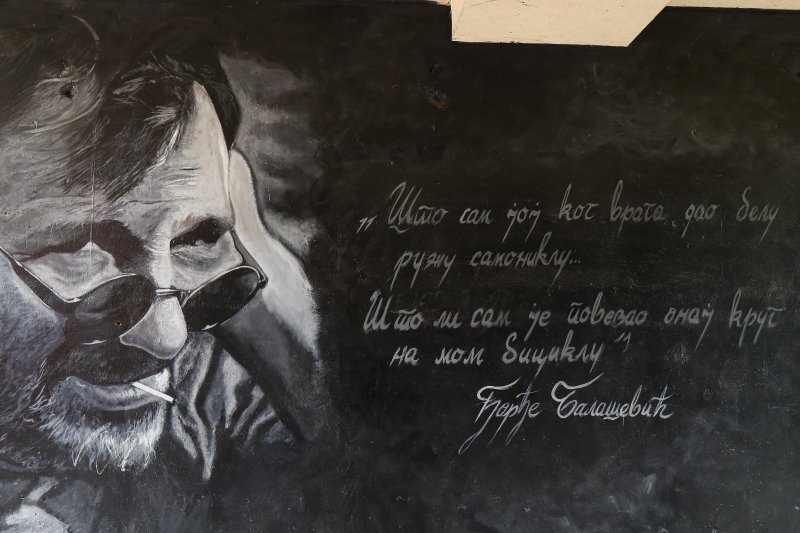 „Што сам јој ког врага дао белу
ружу самониклу...
Што ли сам је повезао онај круг
на мом бициклу"
Ђорђе Балашевић